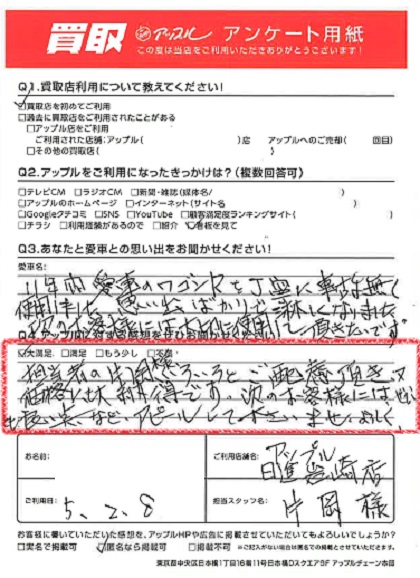 買取 アップル アンケート用紙
この度は当店をご利用いただきありがとうございます!
Q1.買取店利用について教えてください!
☑買取店を初めてご利用
□過去に買取店をご利用されたことがある
□アップル店をご利用
ご利用された店舗:アップル( )店 アップルへのご売却( 回目)
□その他の買取店( )
Q2.アップルをご利用になったきっかけは?(複数回答可)
□テレビCM □ラジオCM □新聞・雑誌(媒体名/ )
□アップルのホームページ □インターネット(サイト名 )
□Googleクチコミ □SNS □YouTube □顧客満足度ランキングサイト( )
□チラシ □利用経験があるので □紹介 ☑看板を見て
Q3.あなたと愛車との思い出をお聞かせください!
愛車名:
11年間愛車のワゴンRを丁寧に事故無く
使用しました 思い出ばかりで淋しくなりました
次のお客様に大切に使用して頂きたいです。
☑大満足 □満足 □もう少し □不満
担当者の片岡様 いろいろと ご配慮頂き又
価格も大納得です。次のお客様には
良い車など、アピールして下さいませ。よろしく
お名前:
ご利用店舗名: アップル
日進岩崎店
ご利用日: 5.2.8
担当スタッフ名: 片岡様
お客様に書いていただいた感想を、アップルHPや広告に掲載させていただいてもよろしいでしょうか?
□実名で掲載可 ☑匿名なら掲載可 □掲載不可 ※ご記入がない場合は匿名での掲載とさせていただきます。
東京都中央区日本橋1丁目16番11号日本橋Dスクエア8F アップルチェーン本部